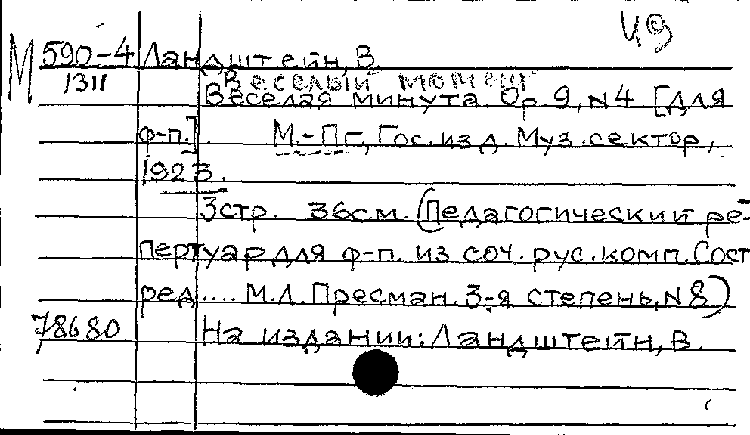 И9
М 590-4 Ландштейн, В.
1311 Веселый момент
Веселая минута. Op. 9, N 4 [для
ф-п.] М.-Пг., Гос. изд. Муз. сектор,
1923.
3 стр. 36 см. (Педагогический ре-
пертуар для ф-п. из соч. рус. комп. Сост.
ред.... М.Л. Пресман. 3-я степень, N 8)
78680 На издании: Ландштейн, В.